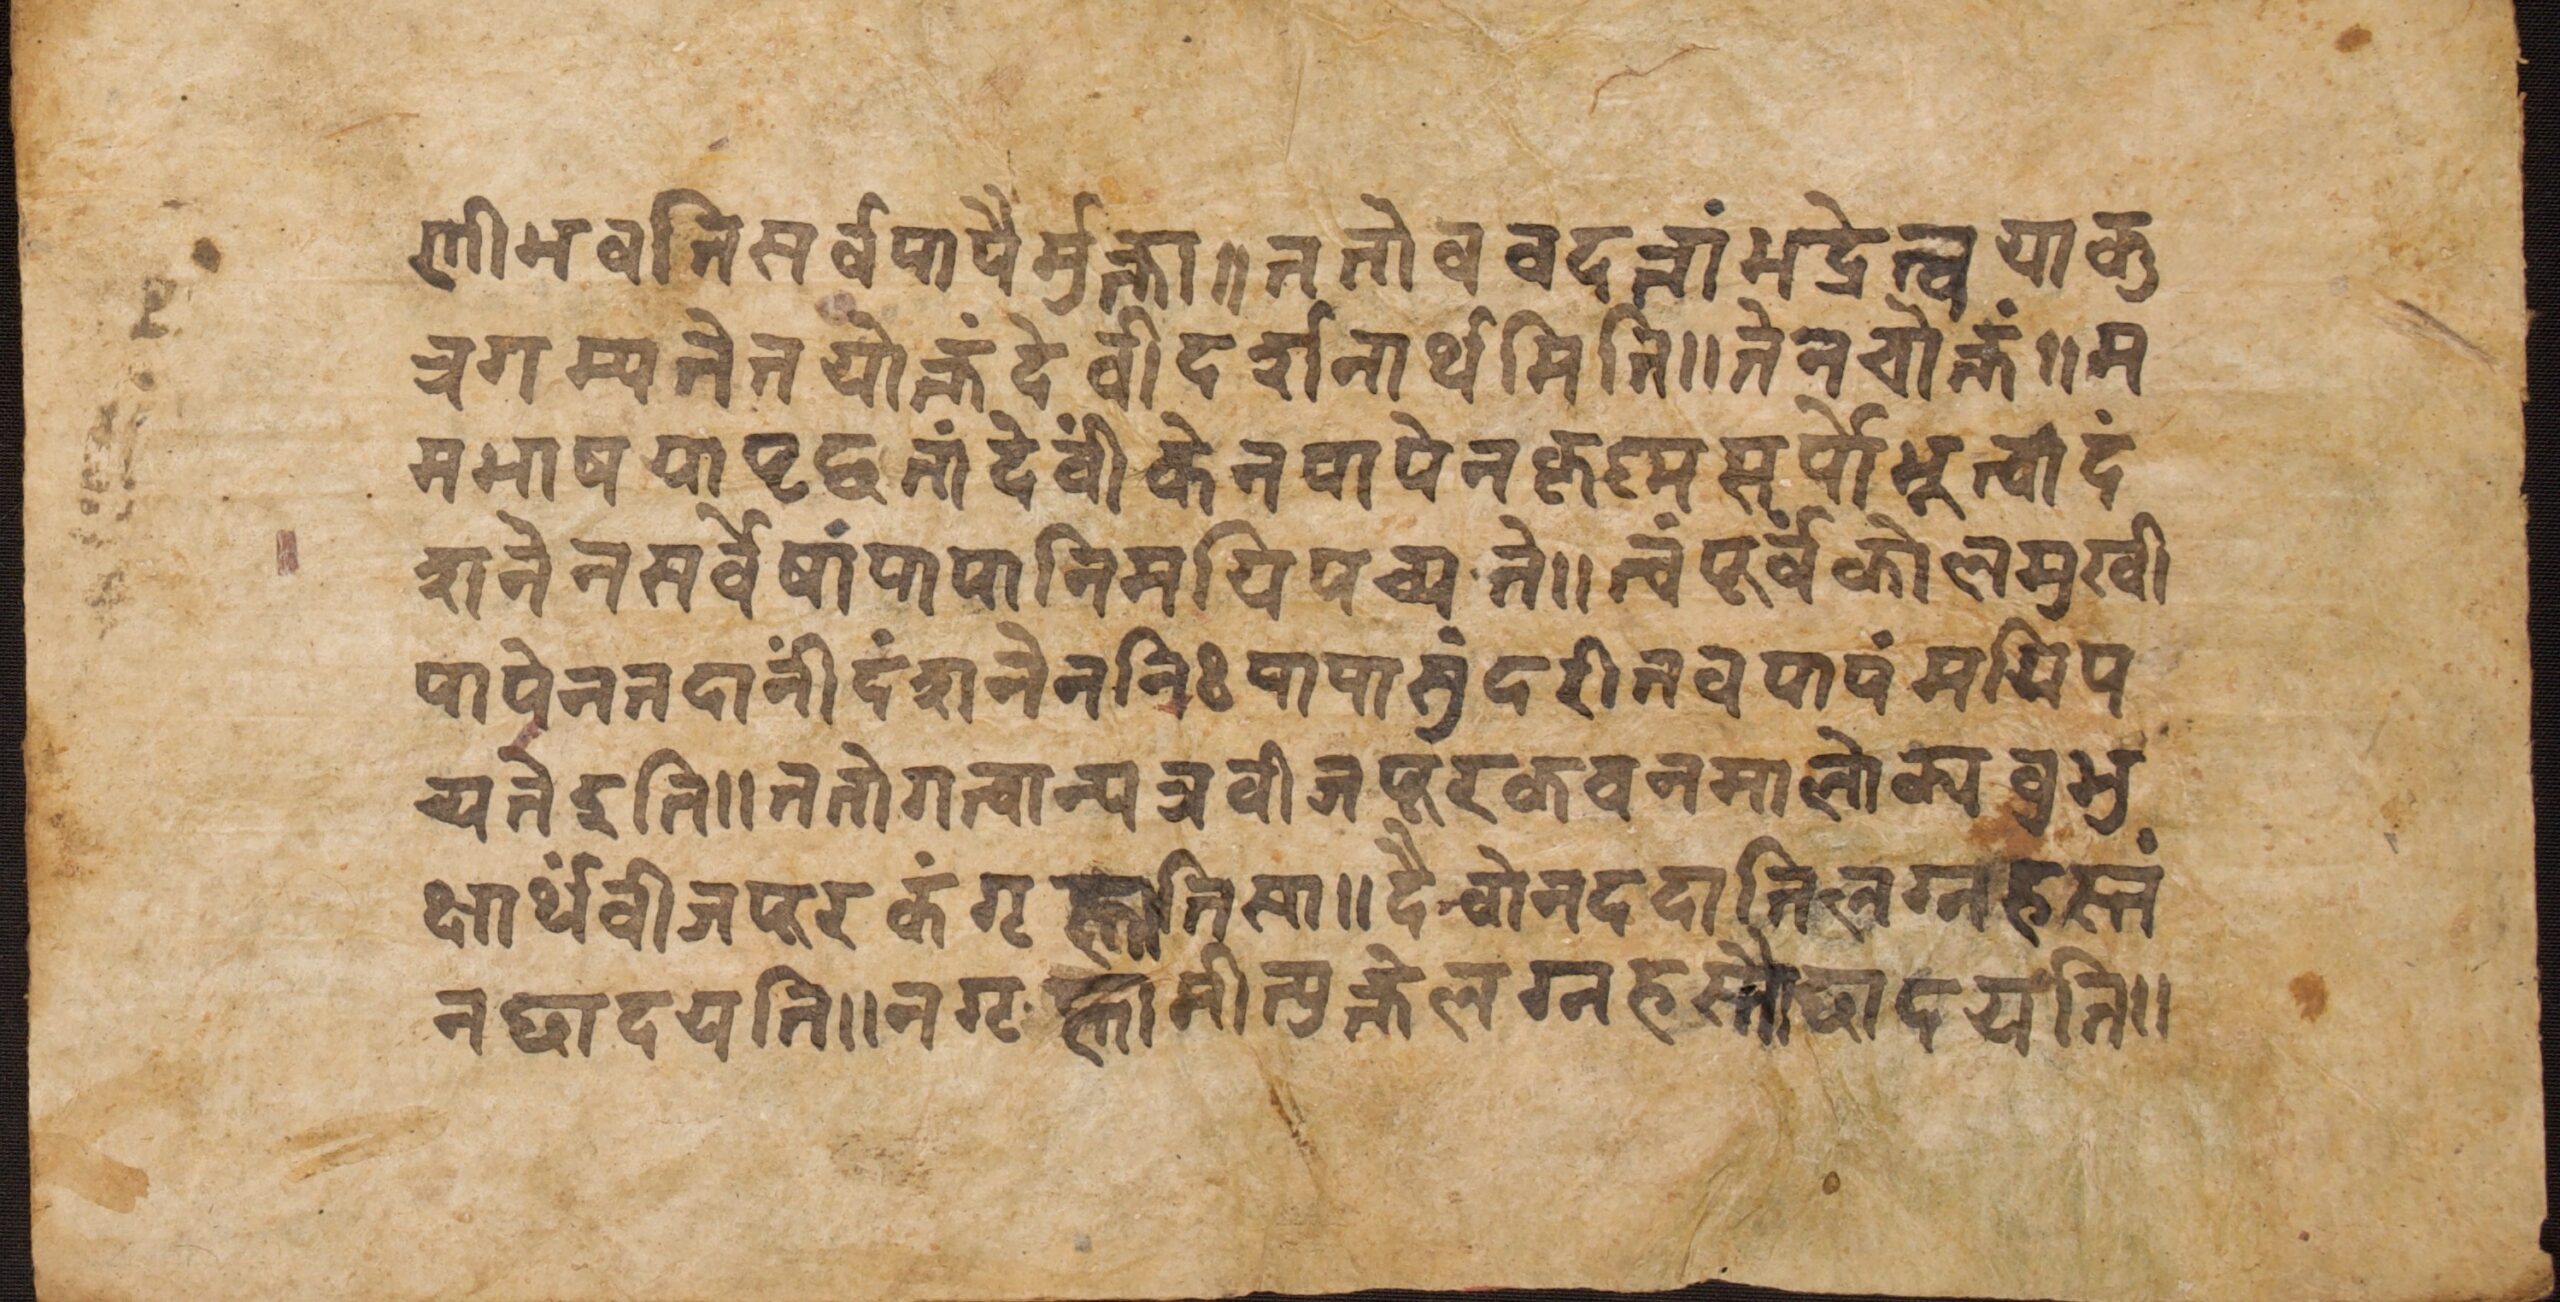 णीभवति सर्वपापैर्मुक्ता॥ ततोववदत्तां भद्रे त्वया कु
त्र गम्यतेतयोक्तं देवीदर्शनार्थमिति॥ तेनचोक्तं॥ म
म भाषया पृछतां देवीं केन पापेन कृष्णसर्पो भूत्वा दं
शनेन सर्वेषां पापानि मयि पच्यते॥ त्वं पूर्वं कोलमुखी
पापेन तदानीं दंशनेन निःपापा सुंदरी तव पापं मयि प
च्यते इति॥ ततो गत्वान्यत्र वीजपूरकवनमालोक्य वुभु
क्षार्थं वीजपूरकं गृह्णाति सा॥ दैवो न ददाति लग्नहस्तं
न छादयति॥ न गृह्णामीत्युक्ते लग्नहस्तो छादयति॥